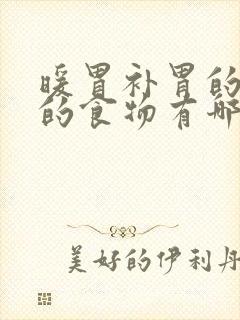 暖胃补胃的
的食物有哪
美好的伊利丹